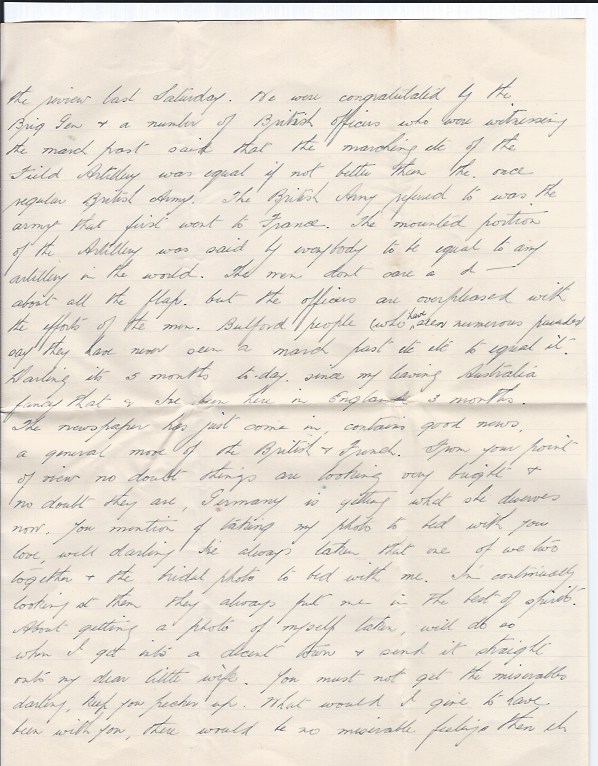 the review last Saturday. We were congratulated by the
Brig Gen & a number of British officers who were witnessing
the march past said that the marching etc of the
Field Artillery was equal if not better than the once
regular British Army. The British Army refered to was the
army that first went to France. The mounted portion
of the Artillery was said by everybody to be equal to any
artillery in the world. The men dont care a d —
about all the flap. but the officers are overpleased with
the efforts of the men. Bulford people (who have seen numerous parades)
say they have never seen a march past etc etc to equal it.
Darling its 5 months to-day. since my leaving Australia
fancy that & Ive been here in England 3 months.
The newspaper has just come in, contains good news,
a general move of the British & French. From your point
of view no doubt things are looking very bright &
no doubt they are, Germany is getting what she deserves
now. You mention of taking my photo to bed with you
love, well darling I've always taken that one of we two
together & the bridal photo to bed with me. Im continually
looking at them they always put me in the best of spirits.
About getting a photo of myself taken, will do so
when I get into a decent town & send it straight
onto my dear little wife. You must not get the miserables
darling, keep your pecker up. What would I give to have
been with you, there would be no miserable feelings then eh